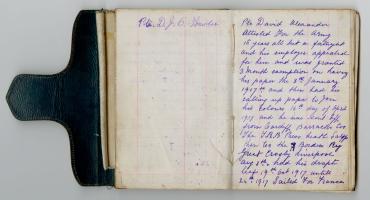 Pte D. J. C.
Pte David Alexander
Attested For the Army
18 years all but a fortnight
and his employer appealed
for him and was granted
3 Month exemption on having
his paper the 8th January
1917 and then had his
calling up paper to Join
his Colours 16th day of April
1917 and he was sent off
from Cardiff Barracks to
The T.R.B. Press Heath
then to the 3 Border Reg
Great Crosby Liverpool
Aug 8th, had his draft
leaf 19th Oct 1917 until
1917 Sailed For France